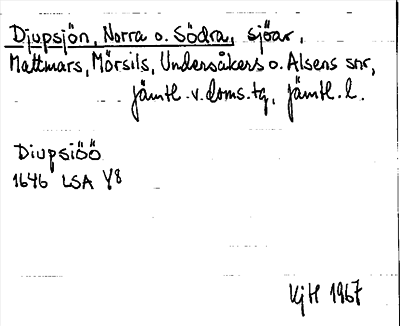 Djupsjön, Norra o. Södra, sjöar,
Mattmars, Mörsils, Undersåkers o. Alsens snr,
jämtl. v. doms. tg, jämtl. l.
Diupsiöö
1646 LSA Y8
KjH 1967